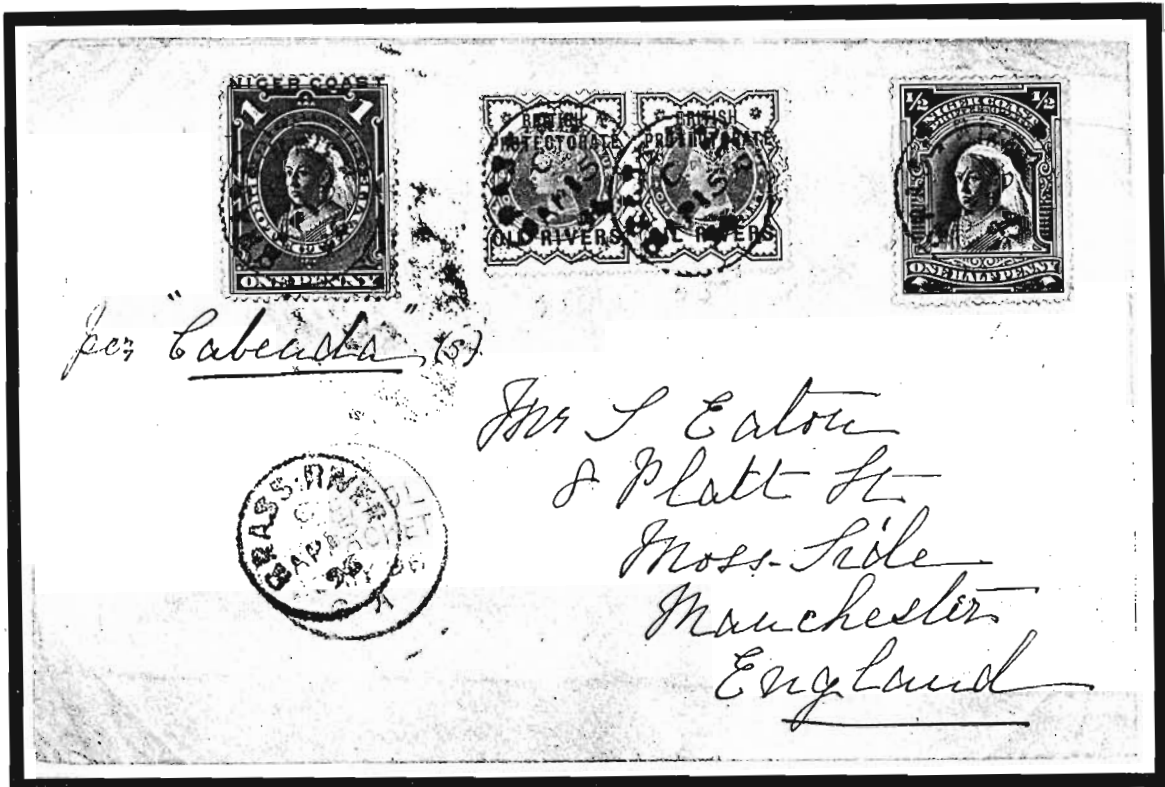 NIGER COAST
1 1
ONE PENNY
BRITISH
PROTECTORATE
OIL RIVERS
BRITISH
PROTECTORATE
OIL RIVERS
1/2 1/2
NIGER COAST
ONE HALF PENNY
per "Cabenda" (s)
Mr S Eaton
8 Platt St
Moss-Side
Manchester
England
BRASS RIVER
C
AP
96